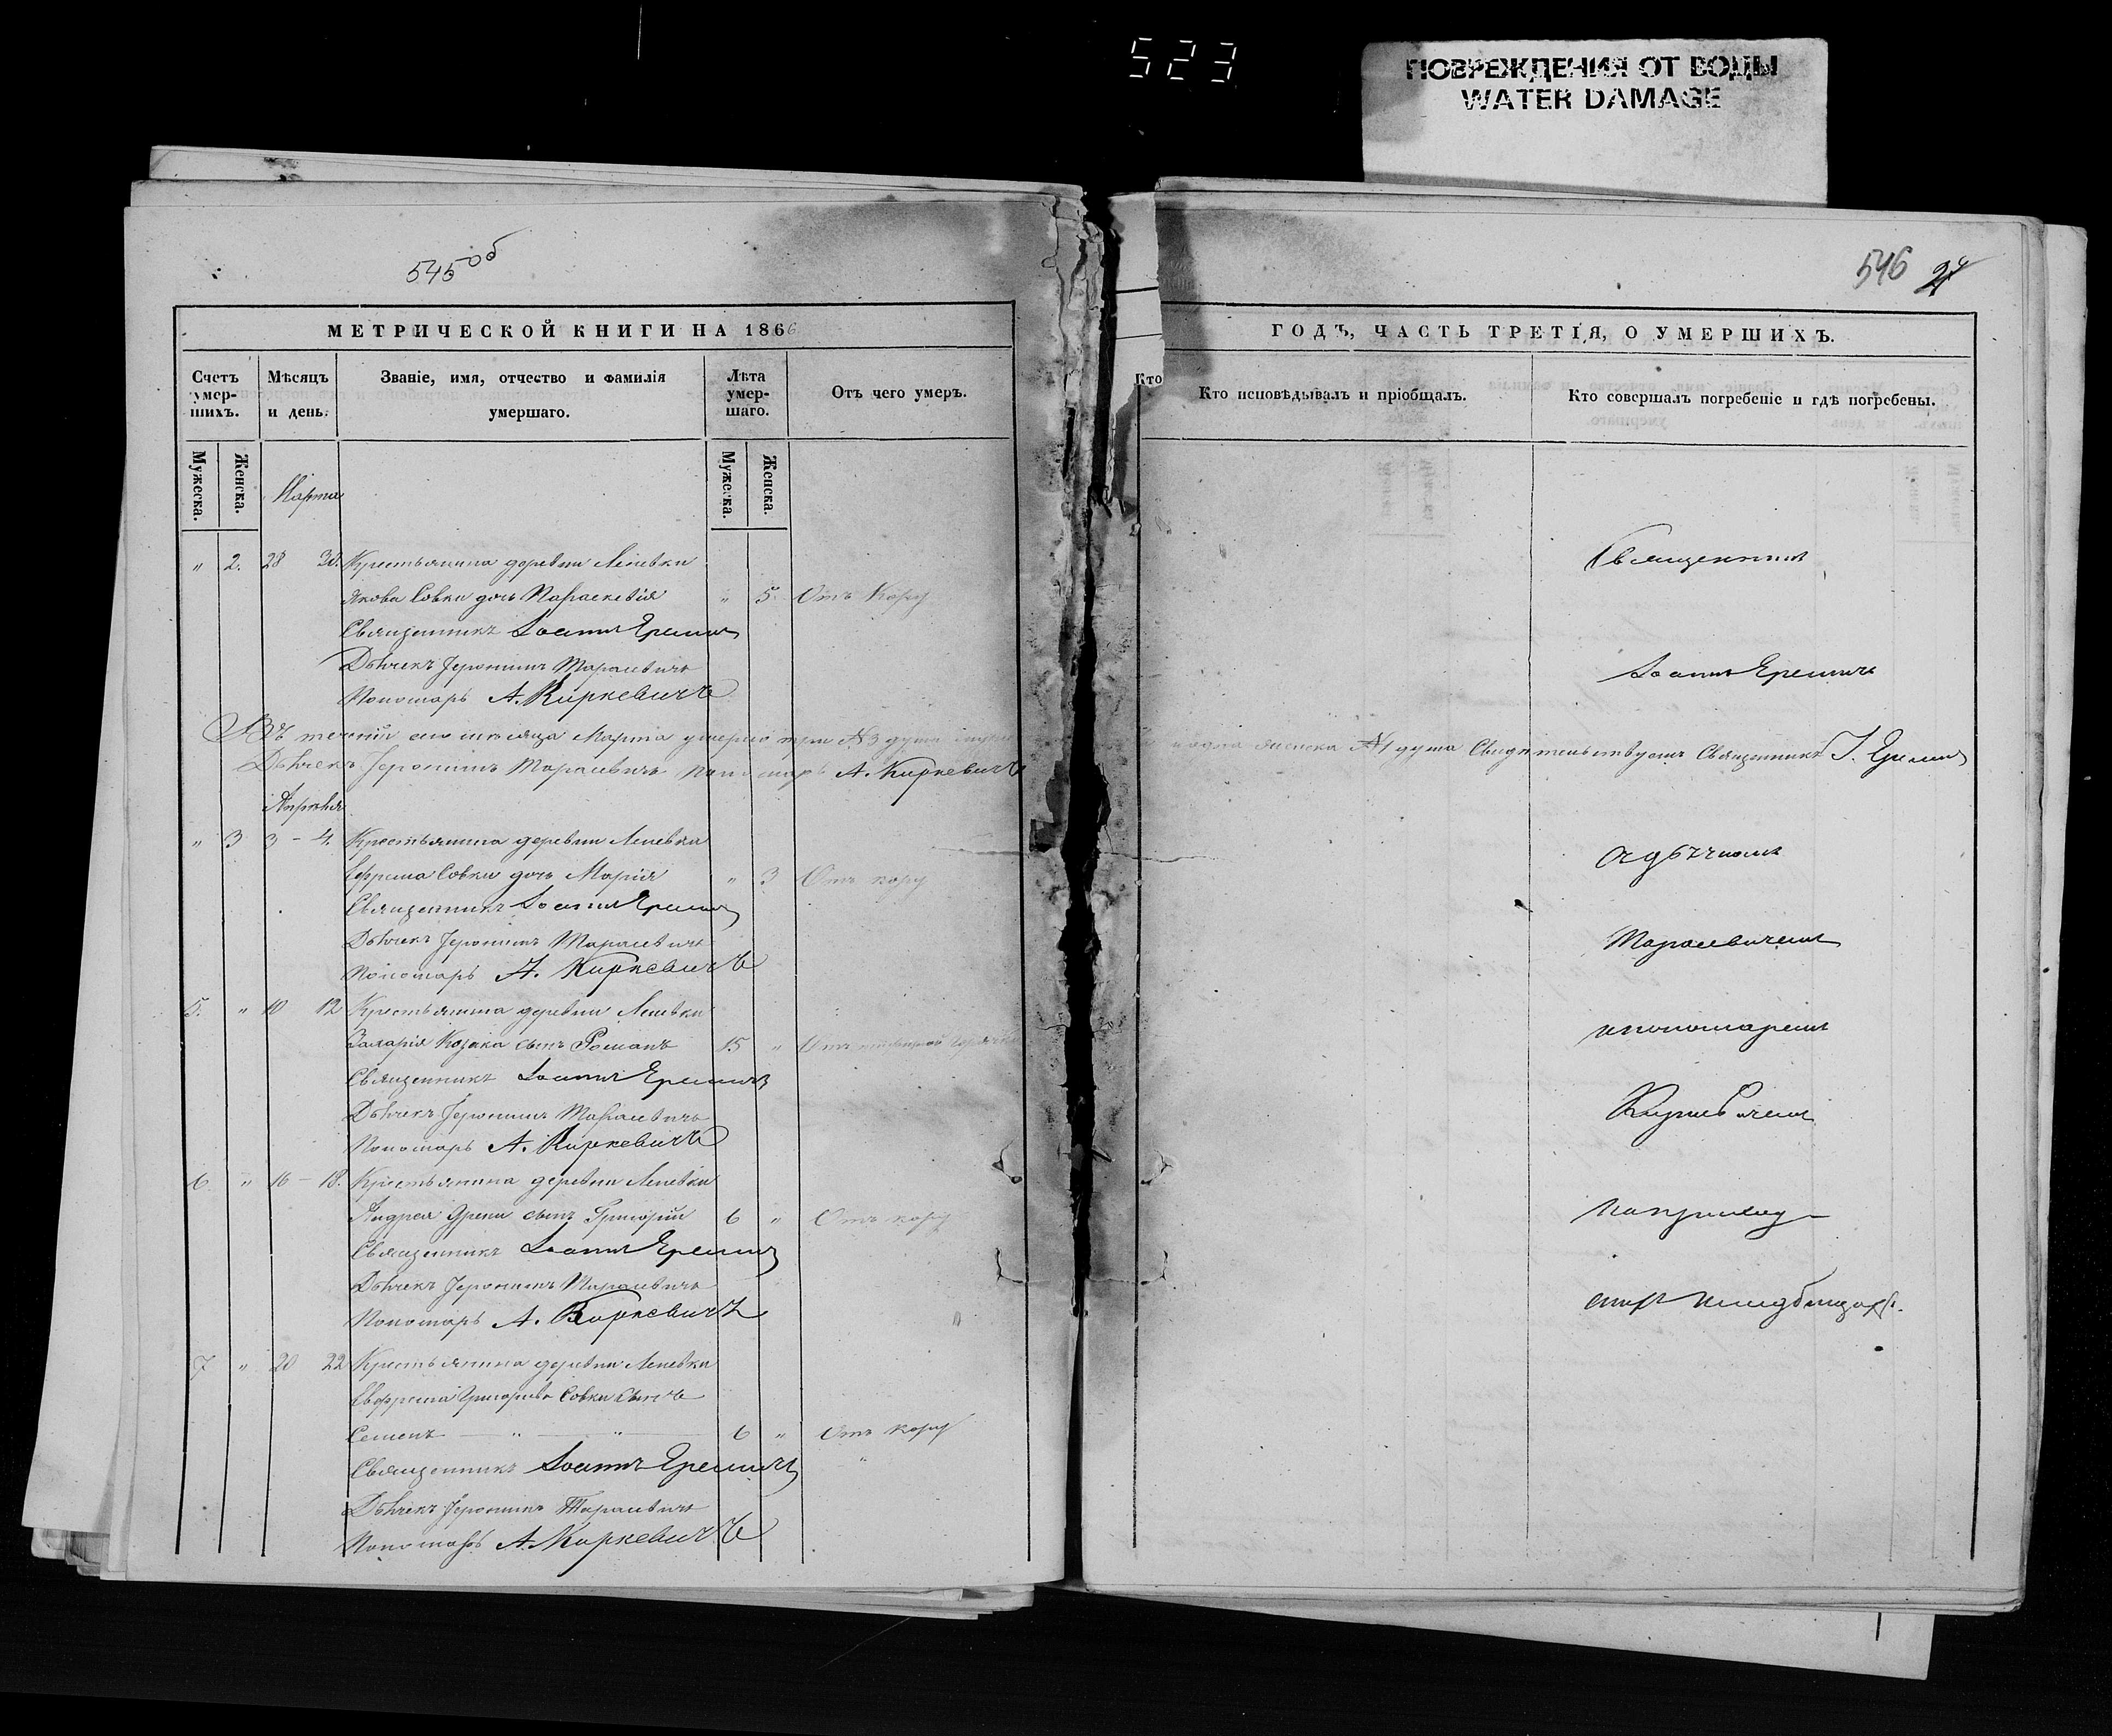 523
ПОВРЕЖДЕНИЯ ОТ ВОДЫ
WATER DAMAGE
545 об
МЕТРИЧЕСКОЙ КНИГИ НА 1866
Счетъ умер-шихъ.
Мѣсяцъ и день.
Званіе, имя, отчество и фамилія умершаго.
Лѣта умер-шаго.
Отъ чего умеръ.
Мужеска.
Женска.
Мужеска.
Женска.
Марта
" 2. 28 30. Крестьянина деревни Лепевки
Якова Совки дочь Параскевія " 5 Отъ кору
Священникъ Іоаннъ Еремичъ
Дьячекъ Іеронимъ Тарасевичъ
Пономарь А. Киркевичъ
Въ теченіи сего мѣсяца Марта умерло три №3 душъ
Дьячекъ Іеронимъ Тарасевичъ Пономарь А. Киркевичъ
Апрѣля
" 3 3 – 4. Крестьянина деревни Лепевки
Ефрема Совки дочь Марія " 3 Отъ кору
Священникъ Іоаннъ Еремичъ
Дьячекъ Іеронимъ Тарасевичъ
Пономарь А. Киркевичъ
5. " 10 12 Крестьянина деревни Лепевки
Захарія Козака сынъ Романъ 15 " Отъ
Священникъ Іоаннъ Еремичъ
Дьячекъ Іеронимъ Тарасевичъ
Пономарь А. Киркевичъ
6 " 16 – 18. Крестьянина деревни Лепевки
Андрея сынъ Григорій 6 " Отъ кору
Священникъ Іоаннъ Еремичъ
Дьячекъ Іеронимъ Тарасевичъ
Пономарь А. Киркевичъ
7 " 20 22 Крестьянина деревни Лепевки
Евфрема Григорьева Совки сынъ
Семенъ — " — " — 6 " Отъ кору
Священникъ Іоаннъ Еремичъ
Дьячекъ Іеронимъ Тарасевичъ
Пономарь А. Киркевичъ
546
ГОДЪ, ЧАСТЬ ТРЕТІЯ, О УМЕРШИХЪ.
Кто
Кто исповѣдывалъ и пріобщалъ.
Кто совершалъ погребеніе и гдѣ погребены.
Священникъ
Іоаннъ Еремичъ
женска №1 душа Свидѣтельствуемъ Священникъ І. Еремичъ
съ дьячкомъ
Тарасевичемъ
и пономаремъ
на приход-
скихъ кладбищахъ.